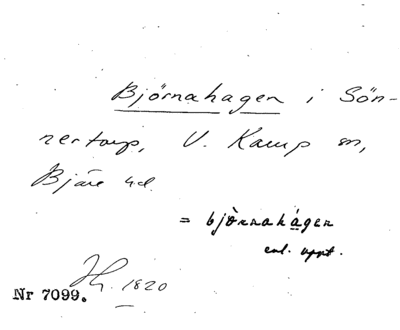 Björnahagen i Sön-
nertorp, V. Karup sn,
Bjäre hd.
= björnahágen
enl. uppt.
1820
Nr 7099.